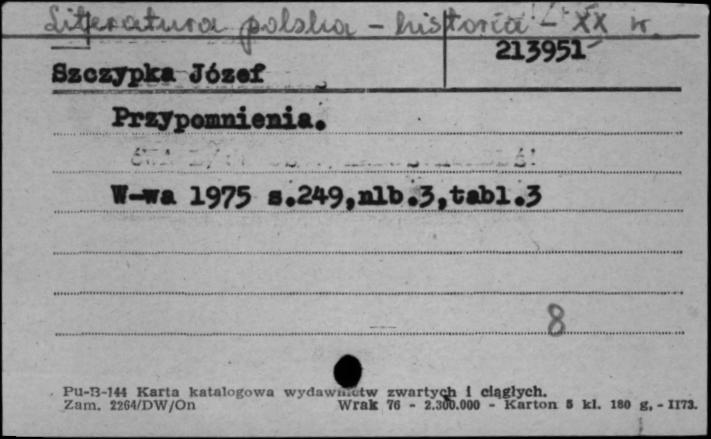 Literatura polska - historia - XX w.
213951
Szczypka Józef
Przypomnienia.
W-wa 1975 s.249,nlb.3,tabl.3
8
Pu-B-144 Karta katalogowa wydawnictw zwartych i ciągłych.
Zam. 2264/DW/On Wrak 76 - 2.300.000 - Karton 5 kl. 180 g. - II73.